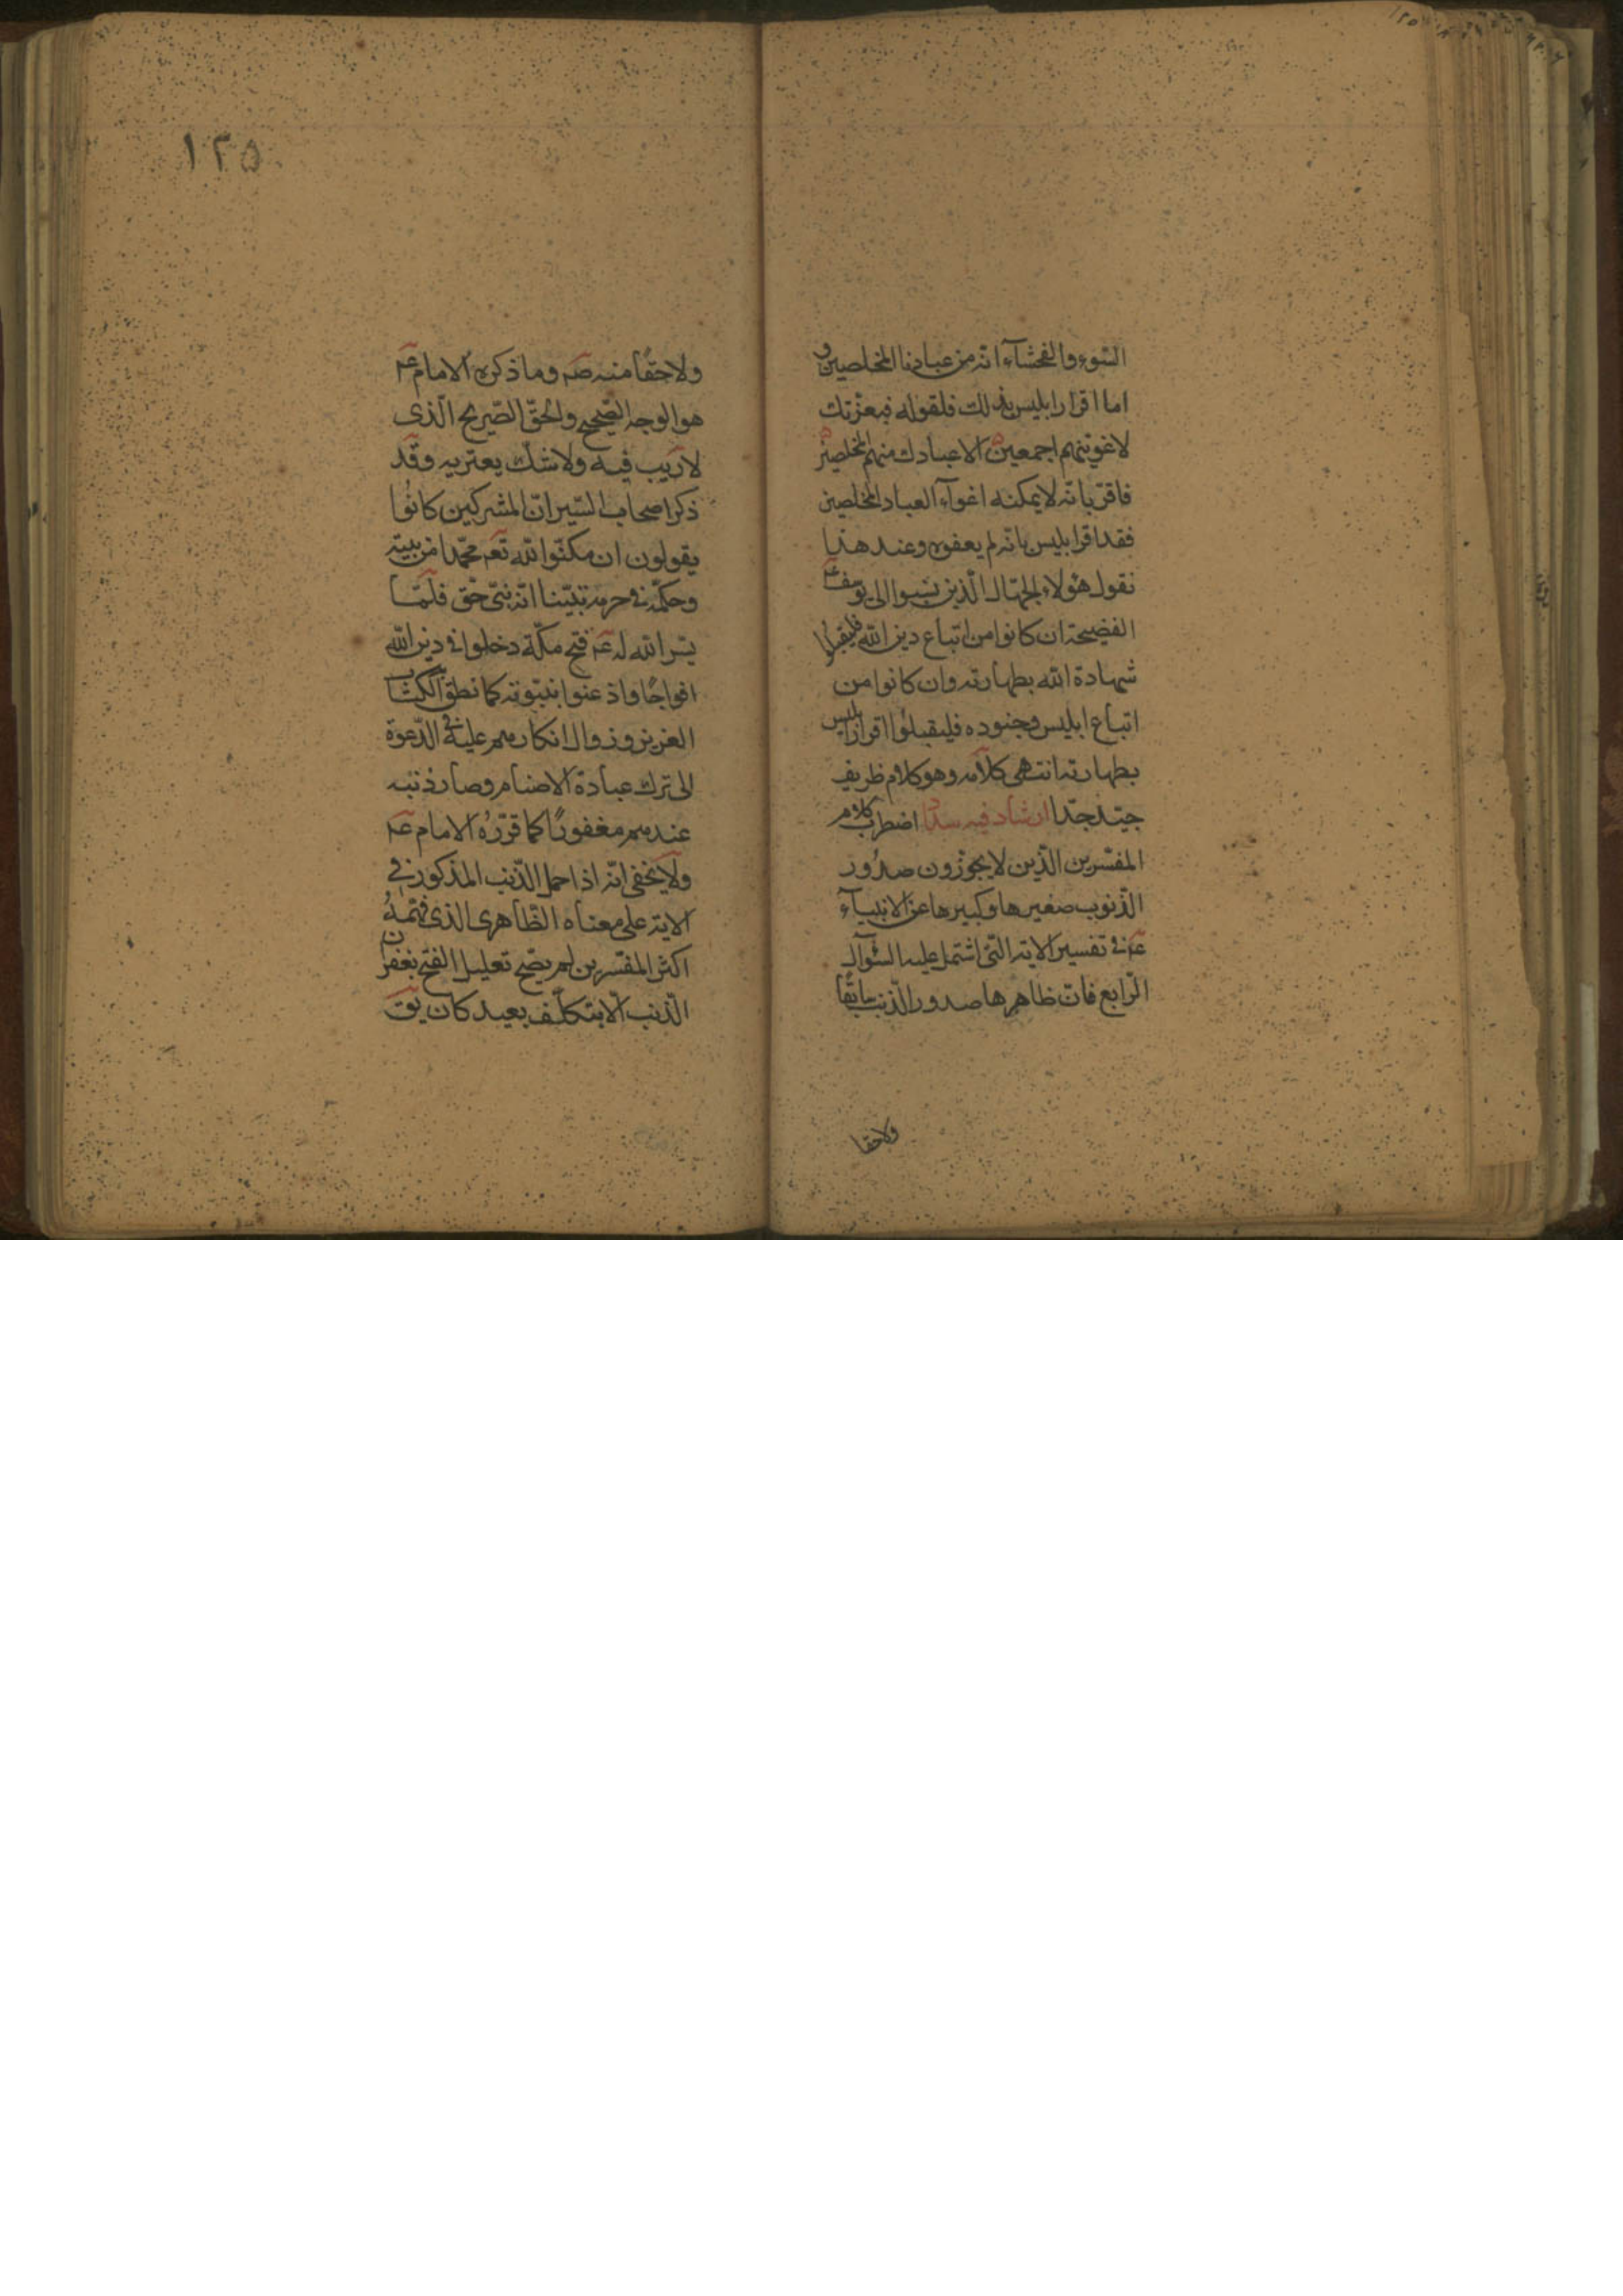 السوء والفحشآء انه من عبادنا المخلصين و
اما اقرار ابليس بذلك فلقوله فبعزتك
لاغوينهم اجمعين الا عبادك منهم المخلصين
فاقر بانه لا يمكنه اغوآء العباد المخلصين
فقد اقر ابليس بانه لم يغوه وعند هذا
نقول هؤلاء الجهال الذين نسبوا الى يوسف عم
الفضيحة ان كانوا من اتباع دين الله فليقبلوا
شهادة الله بطهارته وان كانوا من
اتباع ابليس وجنوده فليقبلوا اقرار ابليس
بطهارته انتهى كلامه وهو كلام ظريف
جيد جدا ارشاد فيه سداد اضطرب كلام
المفسرين الذين لا يجوزون صدور
الذنوب صغيرها وكبيرها عن الانبيآء
عم في تفسير الاية التي اشتمل عليه السؤال
الرابع فان ظاهرها صدور الذنب سابقا
ولاحقا
١٢٥
ولاحقا منه صم وما ذكره الامام عم
هو الوجه الصحيح والحق الصريح الذى
لا ريب فيه ولا شك يعتريه وقد
ذكر اصحاب السير ان المشركين كانوا
يقولون ان مكن الله تعم محمدا من بيته
وحكمه في حرمه تبينا انه نبى حق فلما
يسر الله له عم فتح مكة دخلوا في دين الله
افواجا واذعنوا بنبوته كما نطق الكتاب
العزيز وزوال انكارهم عليه في الدعوة
الى ترك عبادة الاصنام وصار ذنبه
عندهم مغفورا كما قرره الامام عم
ولا يخفى انه اذا حمل الذنب المذكور في
الاية على معناه الظاهرى الذى فهمه
اكثر المفسرين لم يصح تعليل الفتح بغفران
الذنب الا بتكلف بعيد كان يق